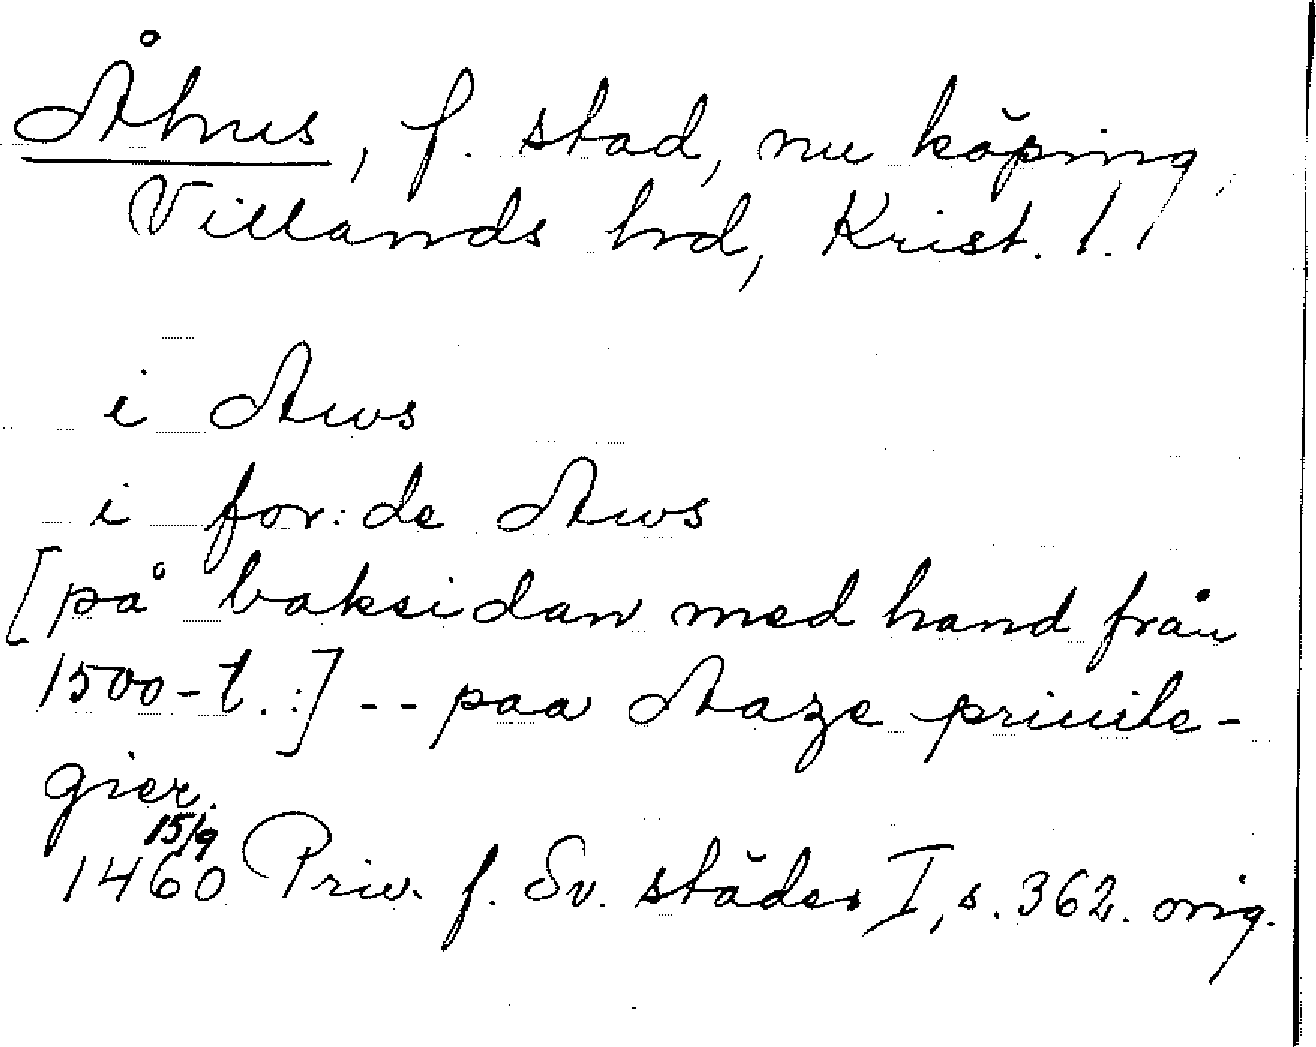 Åhus, f. stad, nu köping,
Villands hd, Krist. l.
i Aws
i for:de Aws
[på baksidan med hand från
1500-t.:] -- paa Aaze priuile-
gier.
15/9
1460 Priv. f. Sv. städer I, s. 362. orig.